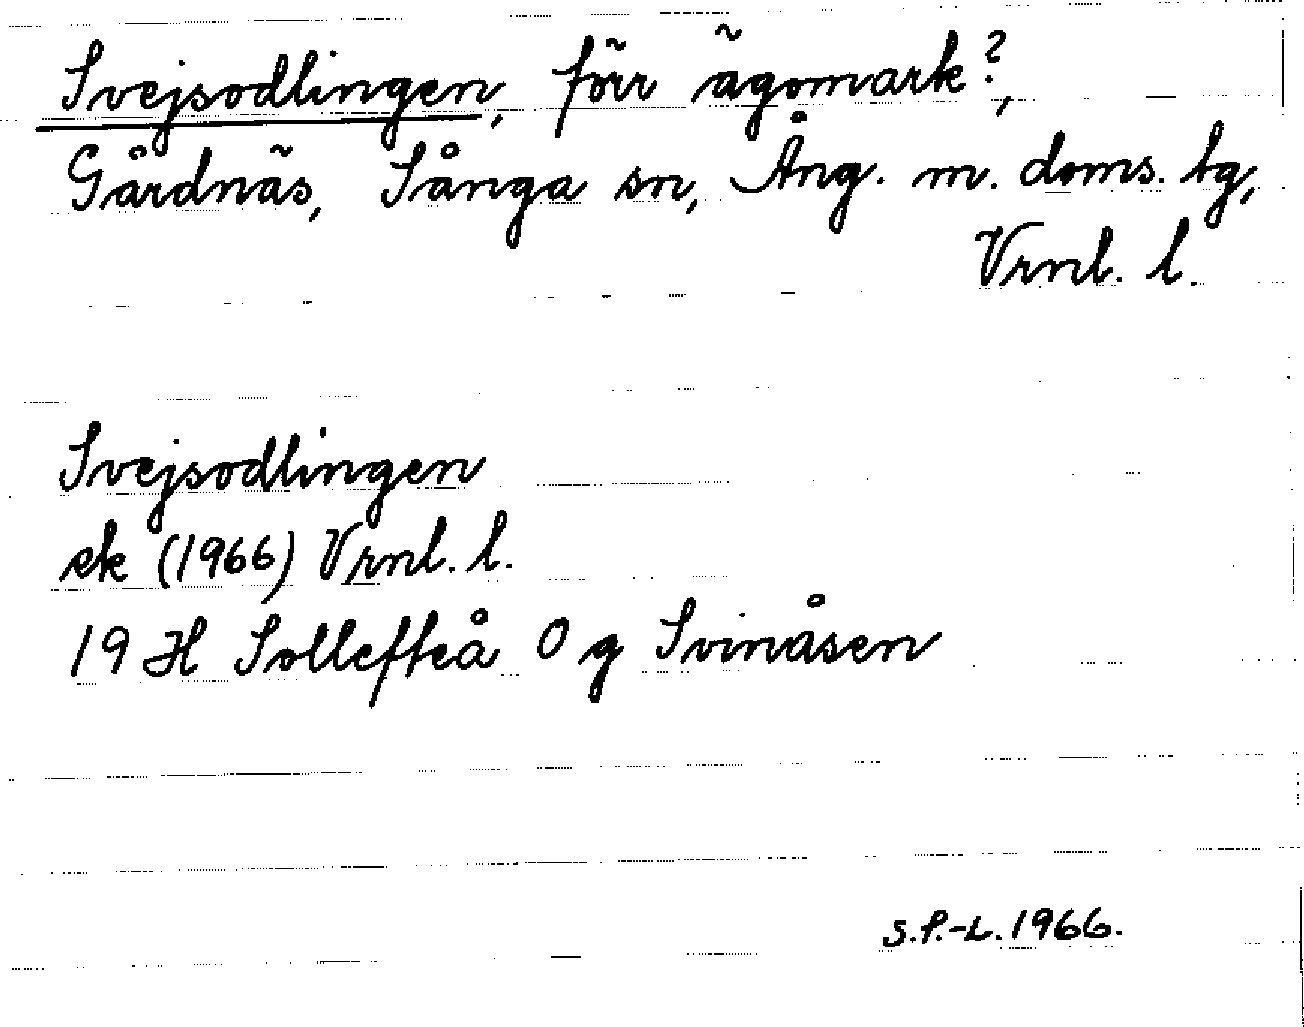 Svejsodlingen, förr ägomark?,
Gårdnäs, Sånga sn, Ång. m. doms. tg,
Vrnl. l.
Svejsodlingen
ek (1966) Vrnl. l.
19 H Sollefteå O g Svinåsen
S.P.-L. 1966.